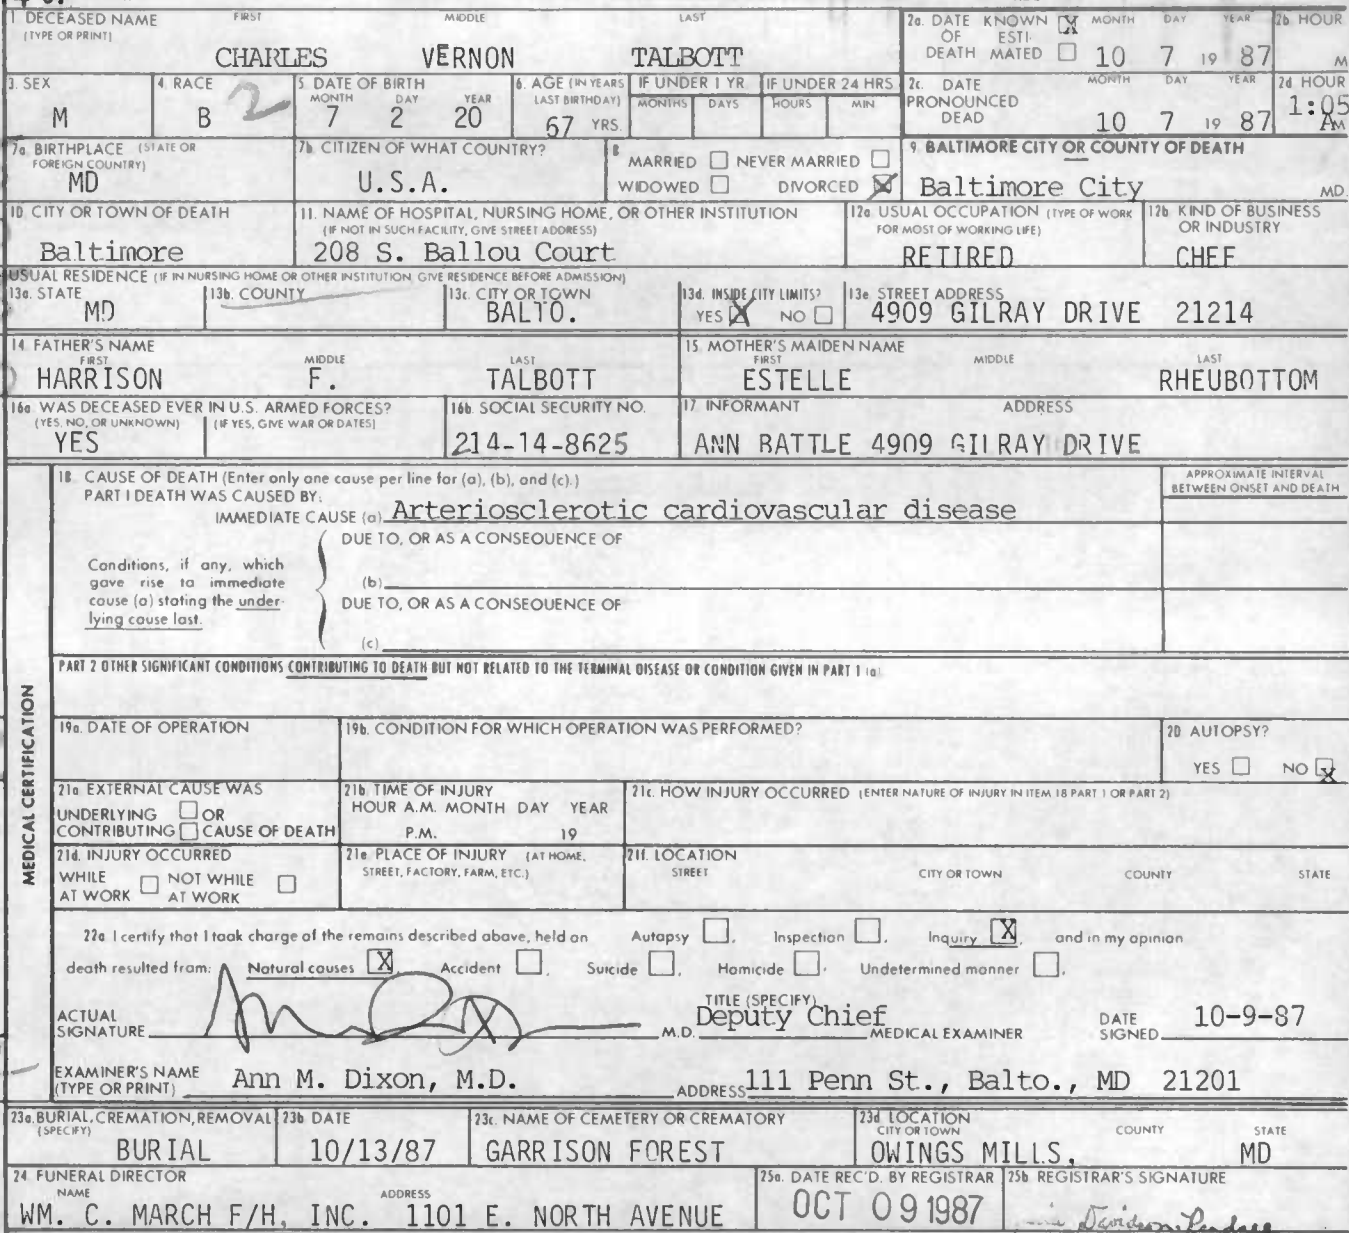 1 DECEASED NAME FIRST MIDDLE LAST
(TYPE OR PRINT)
CHARLES VERNON TALBOTT
2a. DATE OF DEATH KNOWN X ESTIMATED MONTH DAY YEAR
10 7 19 87
2b HOUR
M
3. SEX
M
4. RACE
B 2
5 DATE OF BIRTH
MONTH DAY YEAR
7 2 20
6. AGE (IN YEARS LAST BIRTHDAY)
67 YRS.
IF UNDER 1 YR
MONTHS DAYS
IF UNDER 24 HRS
HOURS MIN
2c. DATE PRONOUNCED DEAD MONTH DAY YEAR
10 7 19 87
2d HOUR
1:05 AM
7a BIRTHPLACE (STATE OR FOREIGN COUNTRY)
MD
7b CITIZEN OF WHAT COUNTRY?
U.S.A.
8
MARRIED NEVER MARRIED
WIDOWED DIVORCED X
9. BALTIMORE CITY OR COUNTY OF DEATH
Baltimore City MD.
10 CITY OR TOWN OF DEATH
Baltimore
11. NAME OF HOSPITAL, NURSING HOME, OR OTHER INSTITUTION
(IF NOT IN SUCH FACILITY, GIVE STREET ADDRESS)
208 S. Ballou Court
12a USUAL OCCUPATION (TYPE OF WORK FOR MOST OF WORKING LIFE)
RETIRED
12b KIND OF BUSINESS OR INDUSTRY
CHEF
USUAL RESIDENCE (IF IN NURSING HOME OR OTHER INSTITUTION, GIVE RESIDENCE BEFORE ADMISSION)
13a. STATE
MD
13b. COUNTY
13c. CITY OR TOWN
BALTO.
13d. INSIDE CITY LIMITS?
YES X NO
13e STREET ADDRESS
4909 GILRAY DRIVE 21214
14 FATHER'S NAME
FIRST MIDDLE LAST
HARRISON F. TALBOTT
15. MOTHER'S MAIDEN NAME
FIRST MIDDLE LAST
ESTELLE RHEUBOTTOM
16a WAS DECEASED EVER IN U.S. ARMED FORCES?
(YES, NO, OR UNKNOWN) (IF YES, GIVE WAR OR DATES)
YES
16b. SOCIAL SECURITY NO.
214-14-8625
17 INFORMANT ADDRESS
ANN BATTLE 4909 GILRAY DRIVE
MEDICAL CERTIFICATION
18 CAUSE OF DEATH (Enter only one cause per line for (a), (b), and (c).)
PART I DEATH WAS CAUSED BY:
IMMEDIATE CAUSE (a) Arteriosclerotic cardiovascular disease
APPROXIMATE INTERVAL BETWEEN ONSET AND DEATH
DUE TO, OR AS A CONSEQUENCE OF
Conditions, if any, which
gave rise to immediate
cause (a) stating the under-
lying cause last.
(b)
DUE TO, OR AS A CONSEQUENCE OF
(c)
PART 2 OTHER SIGNIFICANT CONDITIONS CONTRIBUTING TO DEATH BUT NOT RELATED TO THE TERMINAL DISEASE OR CONDITION GIVEN IN PART 1 (a)
19a. DATE OF OPERATION
19b. CONDITION FOR WHICH OPERATION WAS PERFORMED?
20 AUTOPSY?
YES NO X
21a EXTERNAL CAUSE WAS
UNDERLYING OR
CONTRIBUTING CAUSE OF DEATH
21b. TIME OF INJURY
HOUR A.M. MONTH DAY YEAR
P.M. 19
21c. HOW INJURY OCCURRED (ENTER NATURE OF INJURY IN ITEM 18 PART 1 OR PART 2)
21d. INJURY OCCURRED
WHILE AT WORK NOT WHILE AT WORK
21e PLACE OF INJURY (AT HOME, STREET, FACTORY, FARM, ETC.)
21f. LOCATION
STREET CITY OR TOWN COUNTY STATE
22a I certify that I took charge of the remains described above, held an Autopsy , Inspection , Inquiry X , and in my opinion
death resulted from: Natural causes X , Accident , Suicide , Homicide , Undetermined manner .
ACTUAL SIGNATURE M.D.
TITLE (SPECIFY)
Deputy Chief MEDICAL EXAMINER
DATE SIGNED 10-9-87
EXAMINER'S NAME (TYPE OR PRINT) Ann M. Dixon, M.D.
ADDRESS 111 Penn St., Balto., MD 21201
23a. BURIAL, CREMATION, REMOVAL (SPECIFY)
BURIAL
23b DATE
10/13/87
23c. NAME OF CEMETERY OR CREMATORY
GARRISON FOREST
23d LOCATION
CITY OR TOWN COUNTY STATE
OWINGS MILLS, MD
24 FUNERAL DIRECTOR
NAME ADDRESS
WM. C. MARCH F/H, INC. 1101 E. NORTH AVENUE
25a. DATE REC'D. BY REGISTRAR
OCT 09 1987
25b REGISTRAR'S SIGNATURE
Davidson